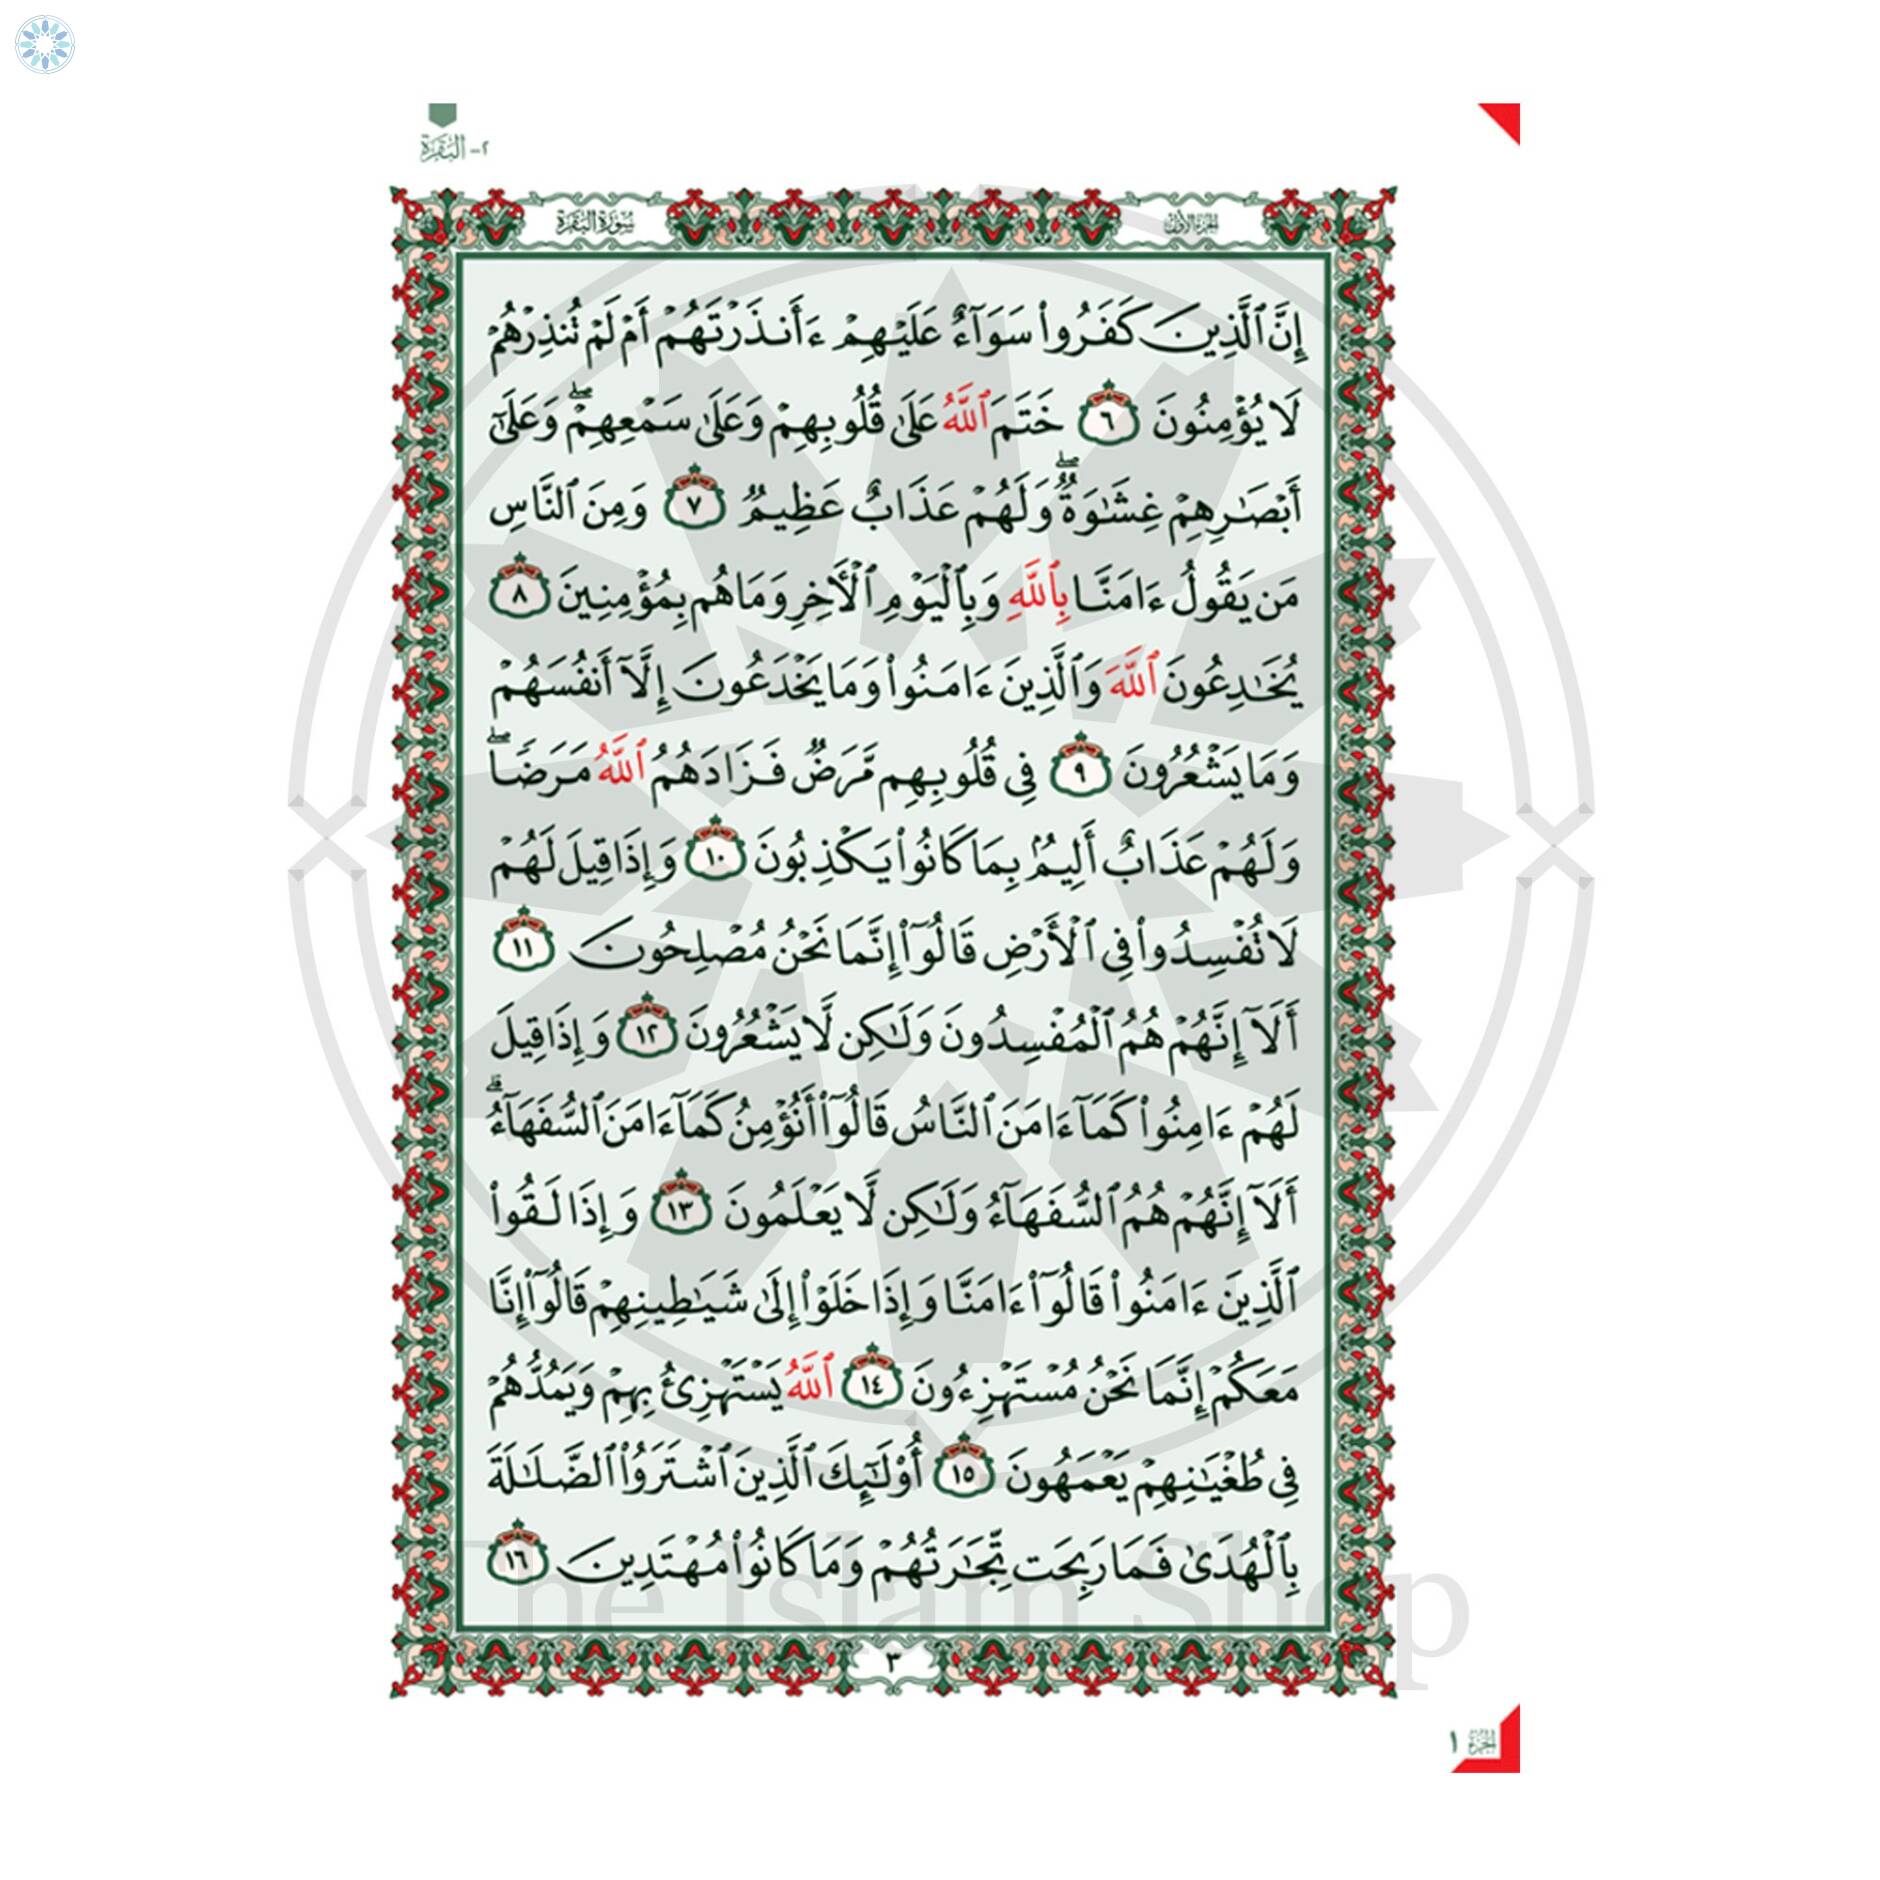 ٢- البَقَرَة
سُورَةُ البَقَرَة
الجزء الأول
إِنَّ ٱلَّذِينَ كَفَرُوا۟ سَوَآءٌ عَلَيْهِمْ ءَأَنذَرْتَهُمْ أَمْ لَمْ تُنذِرْهُمْ
لَا يُؤْمِنُونَ ٦ خَتَمَ ٱللَّهُ عَلَىٰ قُلُوبِهِمْ وَعَلَىٰ سَمْعِهِمْ ۖ وَعَلَىٰٓ
أَبْصَـٰرِهِمْ غِشَـٰوَةٌ ۖ وَلَهُمْ عَذَابٌ عَظِيمٌ ٧ وَمِنَ ٱلنَّاسِ
مَن يَقُولُ ءَامَنَّا بِٱللَّهِ وَبِٱلْيَوْمِ ٱلْـَٔاخِرِ وَمَا هُم بِمُؤْمِنِينَ ٨
يُخَـٰدِعُونَ ٱللَّهَ وَٱلَّذِينَ ءَامَنُوا۟ وَمَا يَخْدَعُونَ إِلَّآ أَنفُسَهُمْ
وَمَا يَشْعُرُونَ ٩ فِى قُلُوبِهِم مَّرَضٌ فَزَادَهُمُ ٱللَّهُ مَرَضًا ۖ
وَلَهُمْ عَذَابٌ أَلِيمٌۢ بِمَا كَانُوا۟ يَكْذِبُونَ ١٠ وَإِذَا قِيلَ لَهُمْ
لَا تُفْسِدُوا۟ فِى ٱلْأَرْضِ قَالُوٓا۟ إِنَّمَا نَحْنُ مُصْلِحُونَ ١١
أَلَآ إِنَّهُمْ هُمُ ٱلْمُفْسِدُونَ وَلَـٰكِن لَّا يَشْعُرُونَ ١٢ وَإِذَا قِيلَ
لَهُمْ ءَامِنُوا۟ كَمَآ ءَامَنَ ٱلنَّاسُ قَالُوٓا۟ أَنُؤْمِنُ كَمَآ ءَامَنَ ٱلسُّفَهَآءُ ۗ
أَلَآ إِنَّهُمْ هُمُ ٱلسُّفَهَآءُ وَلَـٰكِن لَّا يَعْلَمُونَ ١٣ وَإِذَا لَقُوا۟
ٱلَّذِينَ ءَامَنُوا۟ قَالُوٓا۟ ءَامَنَّا وَإِذَا خَلَوْا۟ إِلَىٰ شَيَـٰطِينِهِمْ قَالُوٓا۟ إِنَّا
مَعَكُمْ إِنَّمَا نَحْنُ مُسْتَهْزِءُونَ ١٤ ٱللَّهُ يَسْتَهْزِئُ بِهِمْ وَيَمُدُّهُمْ
فِى طُغْيَـٰنِهِمْ يَعْمَهُونَ ١٥ أُو۟لَـٰٓئِكَ ٱلَّذِينَ ٱشْتَرَوُا۟ ٱلضَّلَـٰلَةَ
بِٱلْهُدَىٰ فَمَا رَبِحَت تِّجَـٰرَتُهُمْ وَمَا كَانُوا۟ مُهْتَدِينَ ١٦
The Islam Shop
٣
الجزء ١